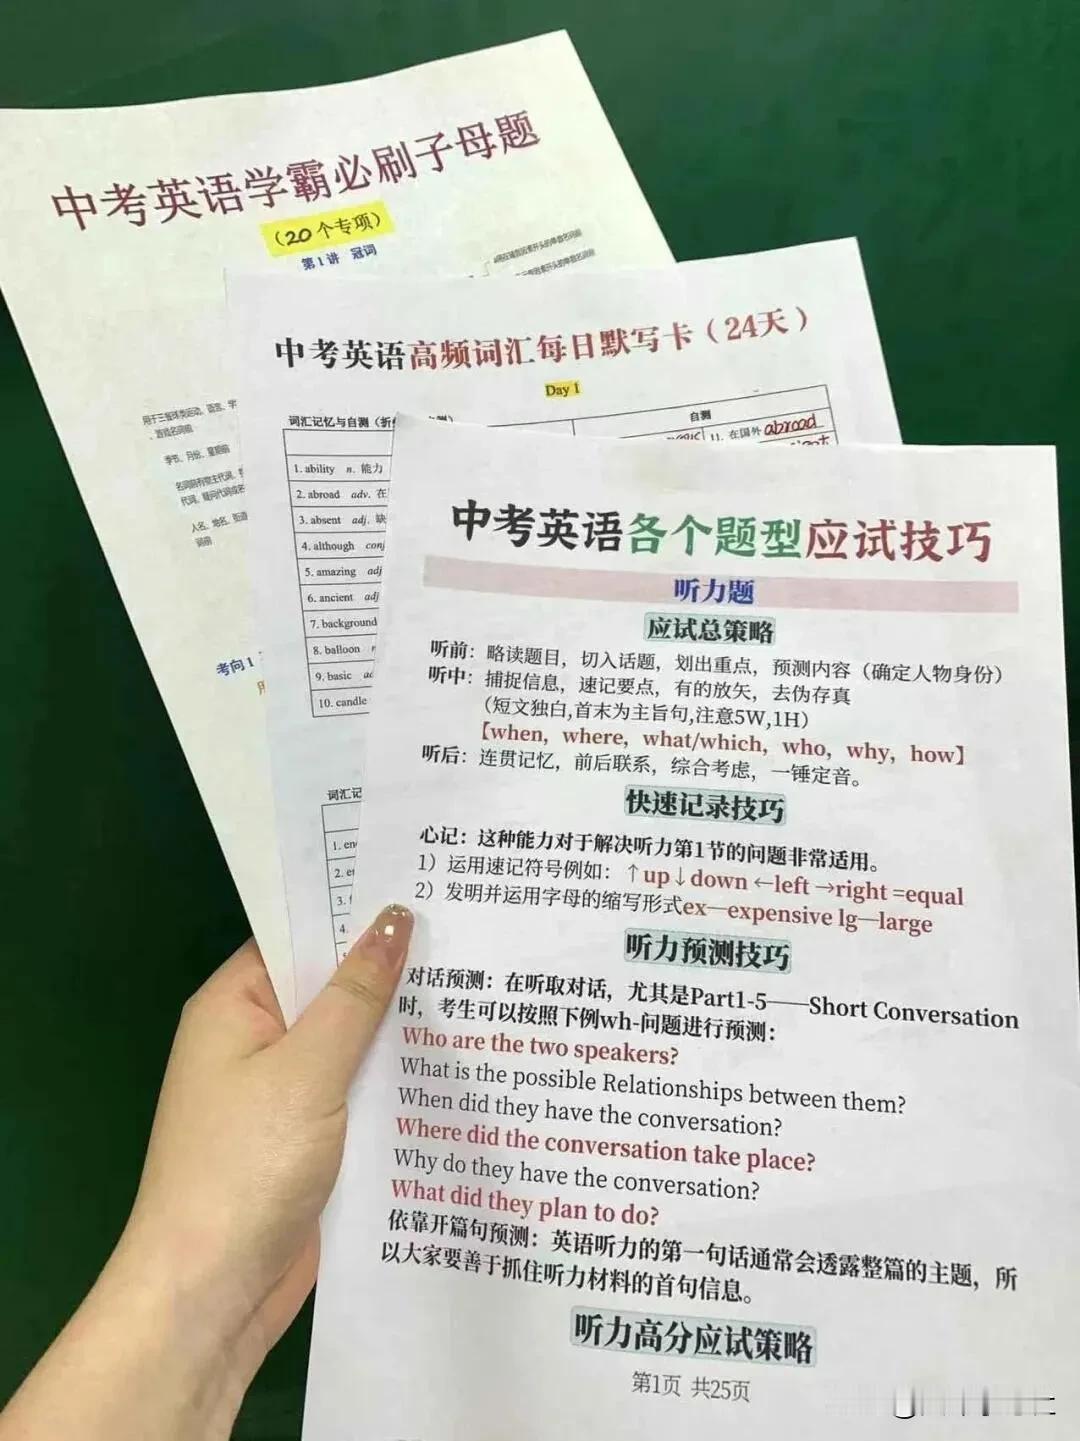 中考英语学霸必刷子母题
（20个专项）
第1讲 冠词
用于三餐球类运动、语言、学
季节、月份、星期前
人名、地名、街道
词前
考向1
中考英语高频词汇每日默写卡（24天）
Day 1
词汇记忆与自测（折
自测
11. 在国外 abroad
1. ability n. 能力
2. abroad adv. 在
3. absent adj. 缺
4. although conj
5. amazing adj
6. ancient adj
7. background
8. balloon
9. basic
10. candle
词汇记
1. en
2. e
3.
4.
中考英语各个题型应试技巧
听力题
应试总策略
听前：略读题目，切入话题，划出重点，预测内容（确定人物身份）
听中：捕捉信息，速记要点，有的放矢，去伪存真
（短文独白,首末为主旨句,注意5W,1H）
【when，where，what/which，who，why，how】
听后：连贯记忆，前后联系，综合考虑，一锤定音。
快速记录技巧
心记：这种能力对于解决听力第1节的问题非常适用。
1）运用速记符号例如：↑up↓down ←left →right =equal
2）发明并运用字母的缩写形式ex—expensive lg—large
听力预测技巧
对话预测：在听取对话，尤其是Part1-5——Short Conversation
时，考生可以按照下例wh-问题进行预测：
Who are the two speakers?
What is the possible Relationships between them?
When did they have the conversation?
Where did the conversation take place?
Why do they have the conversation?
What did they plan to do?
依靠开篇句预测：英语听力的第一句话通常会透露整篇的主题，所
以大家要善于抓住听力材料的首句信息。
听力高分应试策略
第1页 共25页